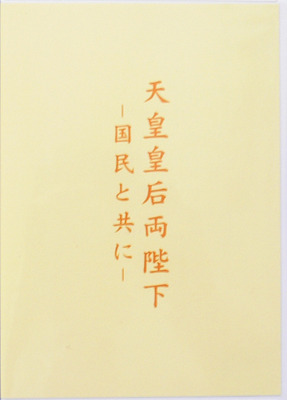 天皇皇后両陛下
―国民と共に―